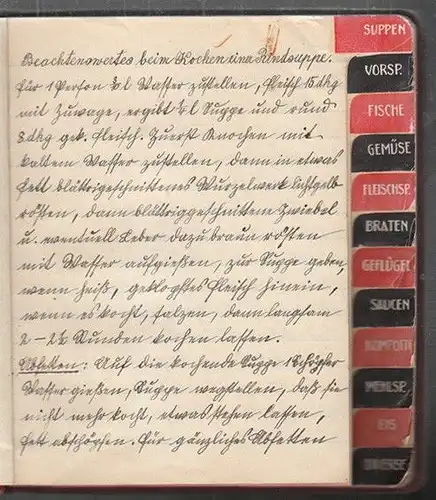 Beachtenswertes beim Kochen einer Rindsuppe.
Für 1 Person l Wasser zustellen, Fleisch 15 dkg
mit Zuwage, ergibt l Suppe und rund
8 dkg gek. Fleisch. Zuerst Knochen mit
kaltem Wasser zustellen, dann in etwas
Fett blättriggeschnittenes Wurzelwerk lichtgelb
rösten, dann blättriggeschnittene Zwiebel
u. eventuell Leber dazu braun rösten
mit Wasser aufgießen, zur Suppe geben,
wenn heiß, geklopftes Fleisch hinein,
wenn es kocht, salzen, dann langsam
2 – 2½ Stunden kochen lassen.
Abfetten: Auf die kochende Suppe 1 Schöpfer
Wasser gießen, Suppe wegstellen, daß sie
nicht mehr kocht, etwas stehen lassen,
Fett abschöpfen. Für gänzliches Abfetten
SUPPEN
VORSP.
FISCHE
GEMÜSE
FLEISCHSP.
BRATEN
GEFLÜGEL
SAUCEN
KOMPOTT
MEHLSP.
EIS